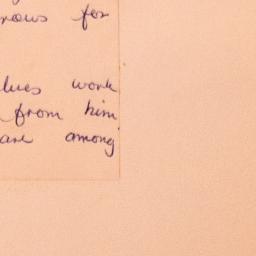 rows for
lues work
from him
are among